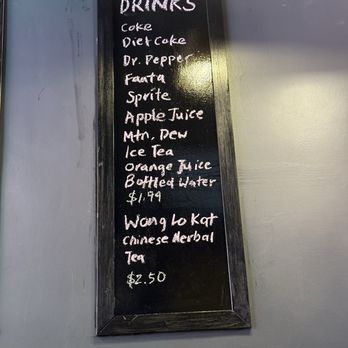 DRINKS
Coke
Diet Coke
Dr. Pepper
Fanta
Sprite
Apple Juice
Mtn. Dew
Ice Tea
Orange Juice
Bottled Water
$1.99
Wong Lo Kat
Chinese Herbal
Tea
$2.50